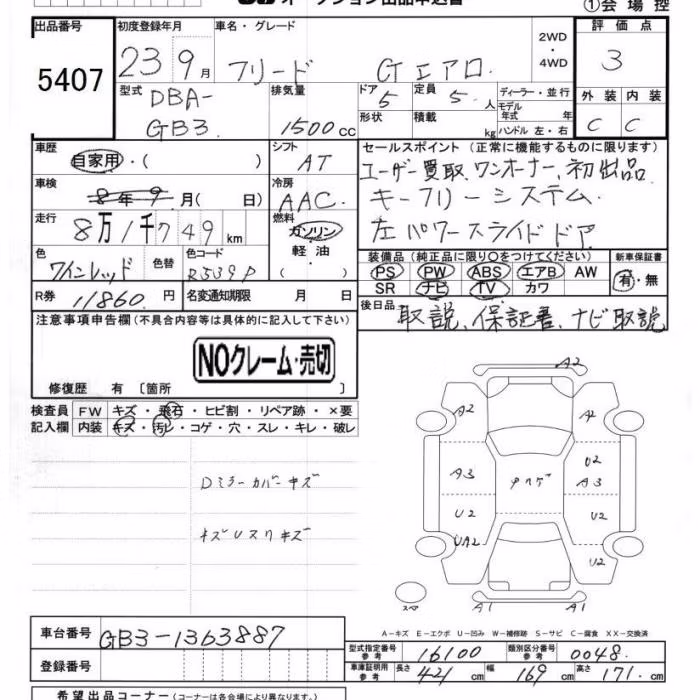 オークション出品申込書
①会場控
出品番号 初度登録年月 車名・グレード 2WD ・ 4WD 評価点
5407 23 9月 フリード Gエアロ 3
型式 DBA-GB3 排気量 1500cc ドア 5 定員 5人 ディーラー・並行 外装 内装
形状 積載 kg モデル年式 年式 ハンドル 左・右 C C
車歴 自家用・( ) シフト AT セールスポイント(正常に機能するものに限ります)
ユーザー買取、ワンオーナー、初出品
車検 8年9月( 日) 冷房 AAC キーフリーシステム
走行 8万1千749km 燃料 ガソリン 軽油 ( ) 左パワースライドドア
色 ワインレッド 色替 色コード R539P 装備品(純正品に限り○をつけてください) 新車保証書
PS PW ABS エアB AW 有・無
SR ナビ TV カワ
R券 11860円 名変通知期限 月 日 後日品
取説、保証書、ナビ取説
注意事項申告欄(不具合内容等は具体的に記入して下さい)
NOクレーム・売切
修復歴 有〔箇所 〕
検査員記入欄 FW キズ・飛石・ヒビ割・リペア跡・×要
内装 キズ・汚レ・コゲ・穴・スレ・キレ・破レ
Dミラーカバーキズ
A2
A2 A2
A3 U2 A3
U2 U2
UA2 U2
スペア A1 A1
A-キズ E-エクボ U-凹み W-補修跡 S-サビ C-腐食 XX-交換済
車台番号 GB3-1363887
登録番号
型式指定番号 参考 16100 類別区分番号 参考 0048
車庫証明用 参考 長さ 421cm 幅 169cm 高さ 171cm
希望出品コーナー(コーナーは各会場により異なります)